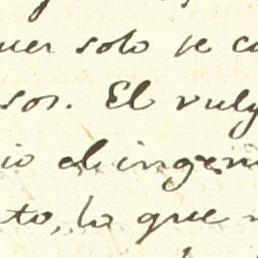 uer solo se co
sor. El vulg
io al ingeni
to, lo que